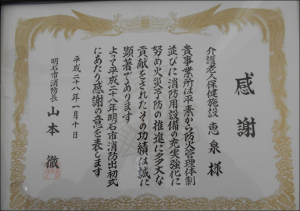 感謝
介護老人保健施設 恵泉 様
貴事業所は平素から防火管理体制
並びに消防用設備の充実強化に
努め火災予防の推進に多大な
貢献をされたその功績は誠に
顕著であります
よって平成二十八年明石市消防出初式
にあたり感謝の意を表します
平成二十八年一月十日
明石市消防長 山本 徹